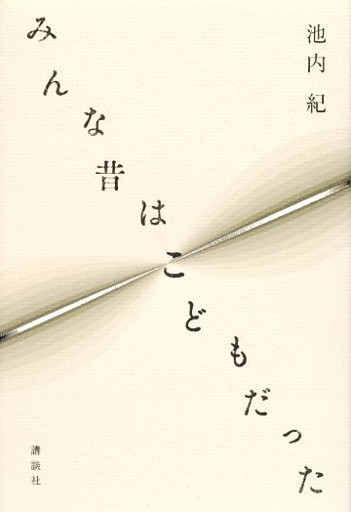 みんな昔はこどもだった
池内 紀
講談社